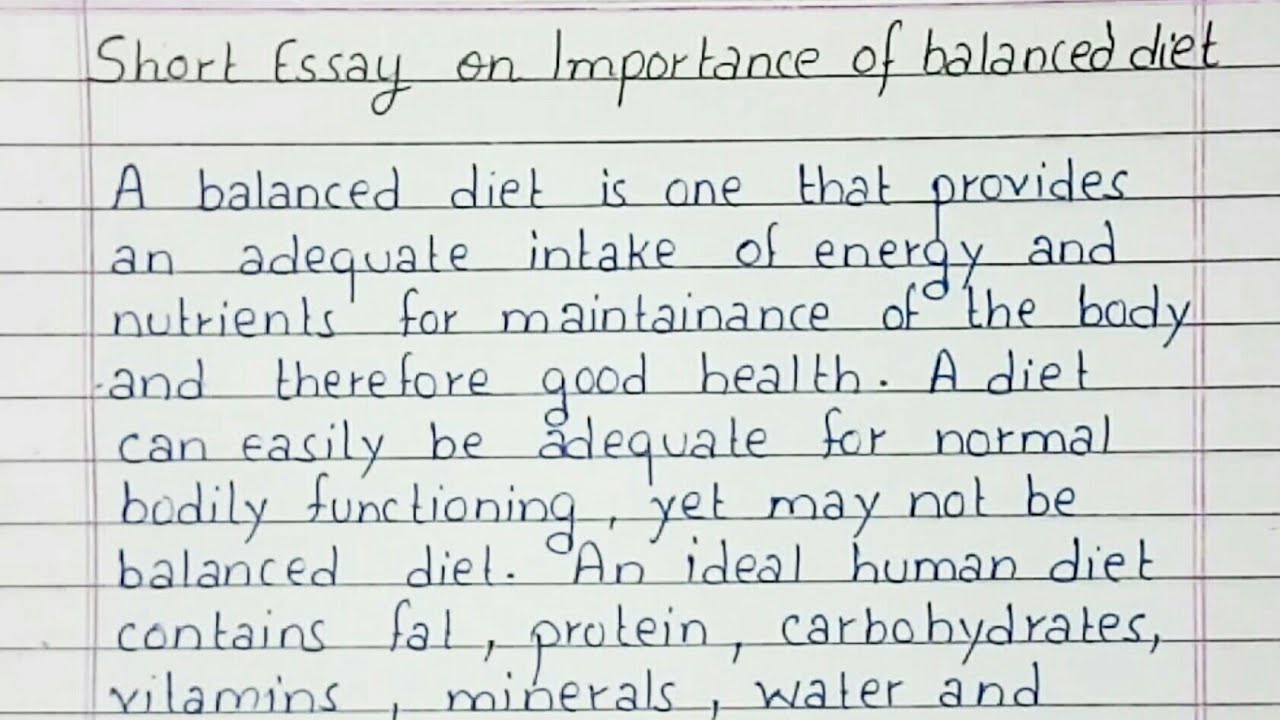 Short Essay on Importance of balanced diet
A balanced diet is one that provides
an adequate intake of energy and
nutrients for maintainance of the body
and therefore good health. A diet
can easily be adequate for normal
bodily functioning, yet may not be
balanced diet. An ideal human diet
contains fat, protein, carbohydrates,
vitamins, minerals, water and